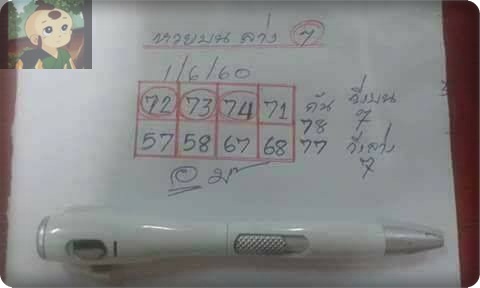 หวยบน ล่าง 7
1/6/60
72 73 74 71 กัน วิ่งบน
78 7
57 58 67 68 77 วิ่งล่าง
7